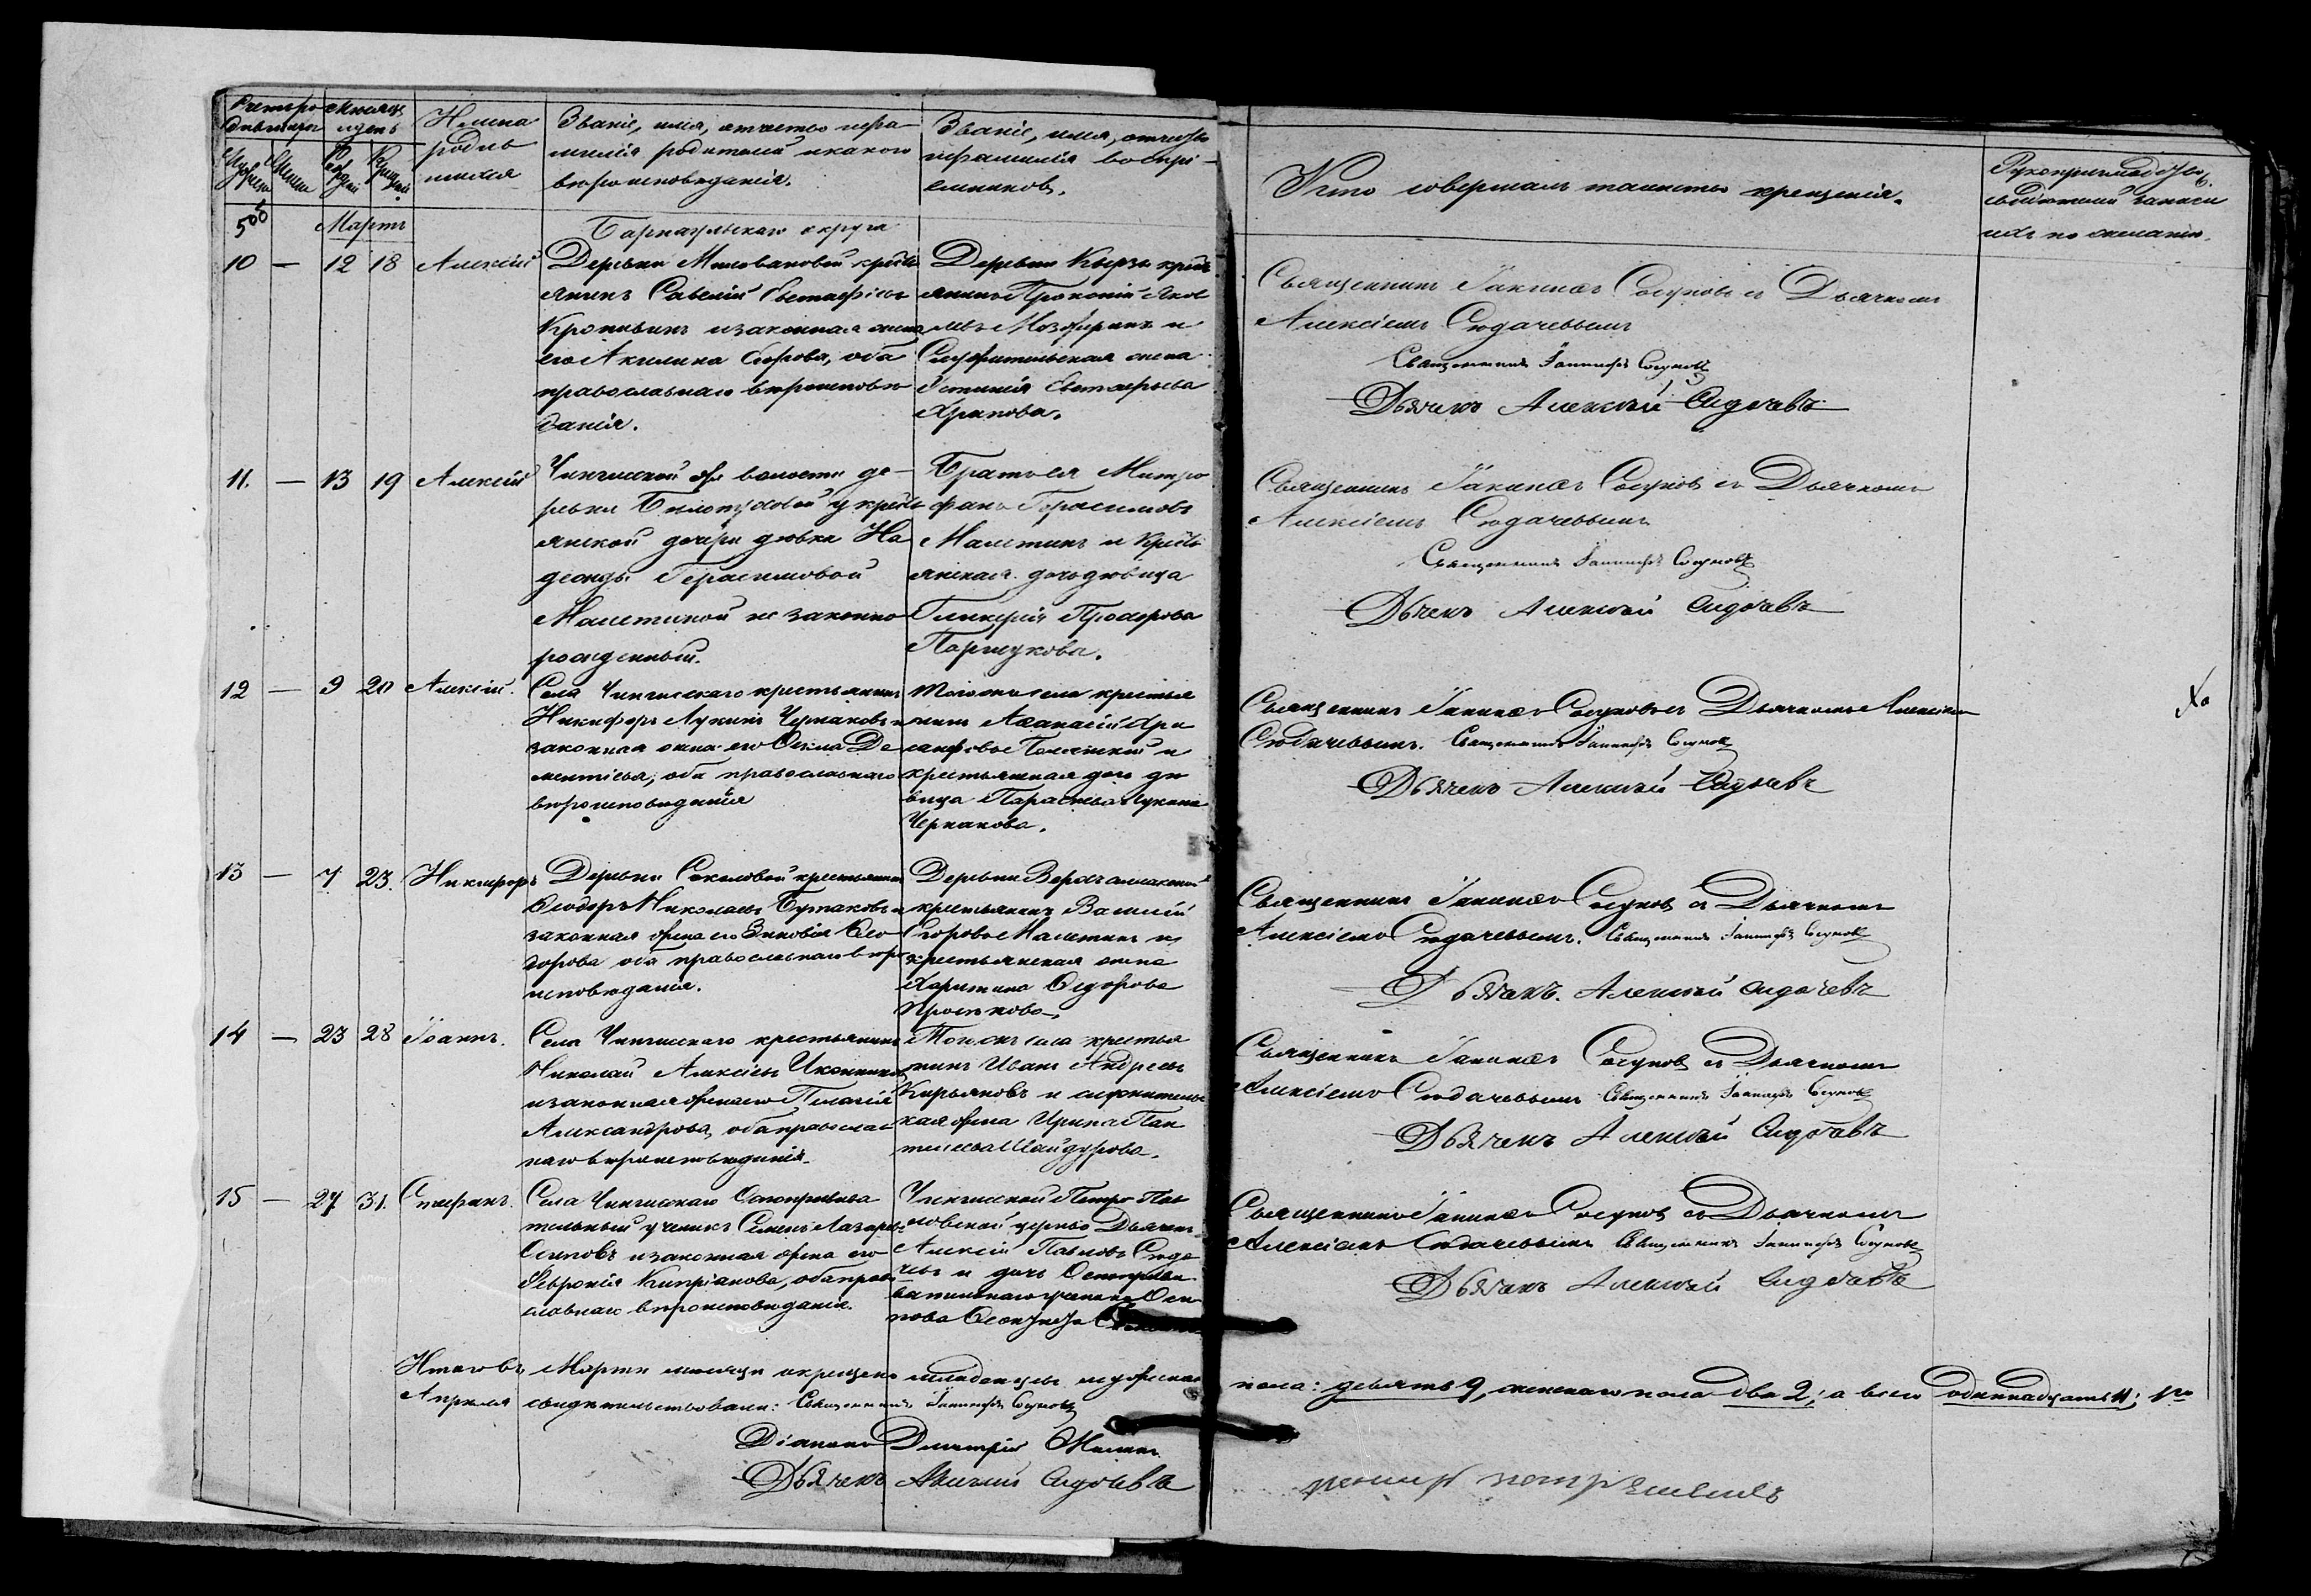 Счетъ ро
дившихся
Мѣсяцъ
и день
Имена
родив
шихся
Званіе, имя, отчество и фа
милія родителей и какого
вѣроисповѣданія.
Званіе, имя, отчество
и фамилія воспрі
емниковъ.
Кто совершалъ таинство крещенія.
Рукоприкладство
свидѣтелей записи
ихъ по желанію.
Мартъ
Барнаульскаго округа
10 — 12 18 Алексій
Деревни Миловановой крестья
янинъ Савелій Евстафіевъ
Кропивинъ и законная жена
его Акилина Егорова, оба
православнаго вѣроисповѣ
данія.
Деревни Кырзы крестья
янинъ Прокопій Яков
левъ Мозжеринъ и
Служительская жена
Устинія Евстафьева
Храпова.
Священникъ Іакинѳъ Сосуновъ съ Дьячкомъ
Алексіемъ Сюдачевымъ
Священникъ Іакинфъ Сосуновъ
Дьячекъ Алексѣй Сидачевъ
11. — 13 19 Алексѣй
Чингисской волости де
ревни Бѣлопуховой у кресть
янской дочери дѣвки На
дежды Герасимовой
Малетиной незаконно
рожденный.
Братья Митро
фанъ Герасимовъ
Малетинъ и кресть
янская дочь дѣвица
Гликерія Прохорова
Паршукова.
Священникъ Іакинѳъ Сосуновъ съ Дьячкомъ
Алексіемъ Сюдачевымъ
Священникъ Іакинфъ Сосуновъ
Дьячекъ Алексѣй Сидачевъ
12 — 9 20 Алексій.
Села Чингисскаго крестьянинъ
Никифоръ Лукинъ Чупаковъ и
законная жена его Ѳекла Де
ментіева, оба православнаго
вѣроисповѣданія
Того же села крестья
нинъ Аѳанасій Хри
санфовъ и
крестьянская дочь дѣ
вица Параскева Лукина
Черпакова.
Священникъ Іакинѳъ Сосуновъ съ Дьячкомъ Алексіемъ
Сюдачевымъ. Священникъ Іакинфъ Сосуновъ
Дьячекъ Алексѣй Сидачевъ
13 — 7 23. Никифоръ
Деревни Соколовой крестьянинъ
Ѳеодоръ Николаевъ Бурмаковъ и
законная жена его Зиновія Ѳео
дорова оба православнаго вѣро
исповѣданія.
Деревни
крестьянинъ Василій
Егоровъ Малетинъ и
крестьянская жена
Харитина Ѳедорова
Проскокова.
Священникъ Іакинѳъ Сосуновъ съ Дьячкомъ
Алексіемъ Сюдачевымъ. Священникъ Іакинфъ Сосуновъ
Дьячекъ. Алексѣй Сидачевъ
14 — 23 28 Іоаннъ.
Села Чингисскаго крестьянинъ
Николай Алексіевъ Иконников
и законная жена его Пелагія
Александрова, оба православ
наго вѣроисповѣданія.
Того же села крестья
нинъ Иванъ Андреевъ
Кирьяновъ и служительс
кая жена Ирина Пан
телеева Шайдурова.
Священникъ Іакинѳъ Сосуновъ съ Дьячкомъ
Алексіемъ Сюдачевымъ Священникъ Іакинфъ Сосуновъ
Дьячекъ Алексѣй Сидачевъ
15 — 27 31. Стефанъ.
Села Чингисскаго Оспопривива
тельный ученикъ Семенъ Лазаревъ
Осиповъ и законная жена его
Февронія Кипріанова, оба право
славнаго вѣроисповѣданія.
Чингисской Петро Пав
ловской церкви Дьячекъ
Алексій Павловъ Сюда
чевъ и дочь Оспоприви
вательнаго ученика Оси
пова
Священникъ Іакинѳъ Сосуновъ съ Дьячкомъ
Алексіемъ Сюдачевымъ Священникъ Іакинфъ Сосуновъ
Дьячекъ Алексѣй Сидачевъ
Итого въ Мартѣ мѣсяцѣ окрещено младенцевъ мужескаго пола: девять 9, женскаго пола два 2, а всего одиннадцать 11; 1го
Апреля свидѣтельствовали: Священникъ Іакинфъ Сосуновъ
Діаконъ Дмитрій
Дьячекъ Алексѣй Сидачевъ